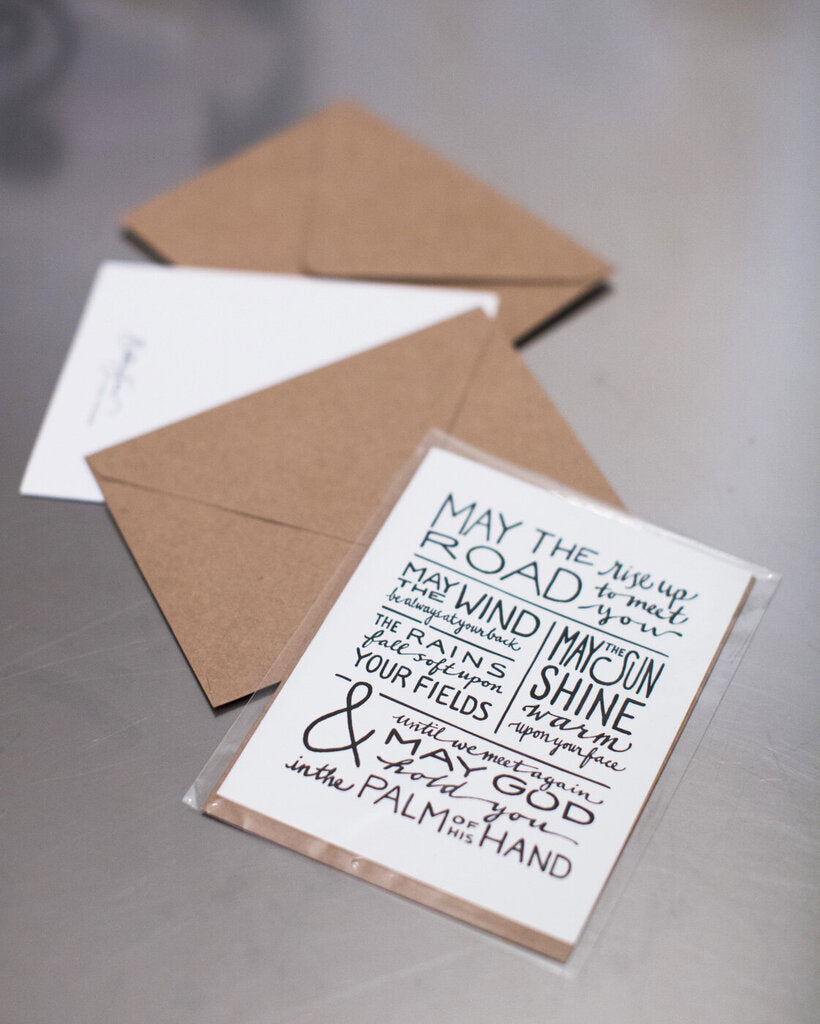 MAY THE rise up
ROAD to meet
you
MAY
THE WIND
be always at your back
MAY THE SUN
SHINE
warm
upon your face
THE RAINS
fall soft upon
YOUR FIELDS
& until we meet again
MAY GOD
hold you
in the PALM OF HIS HAND